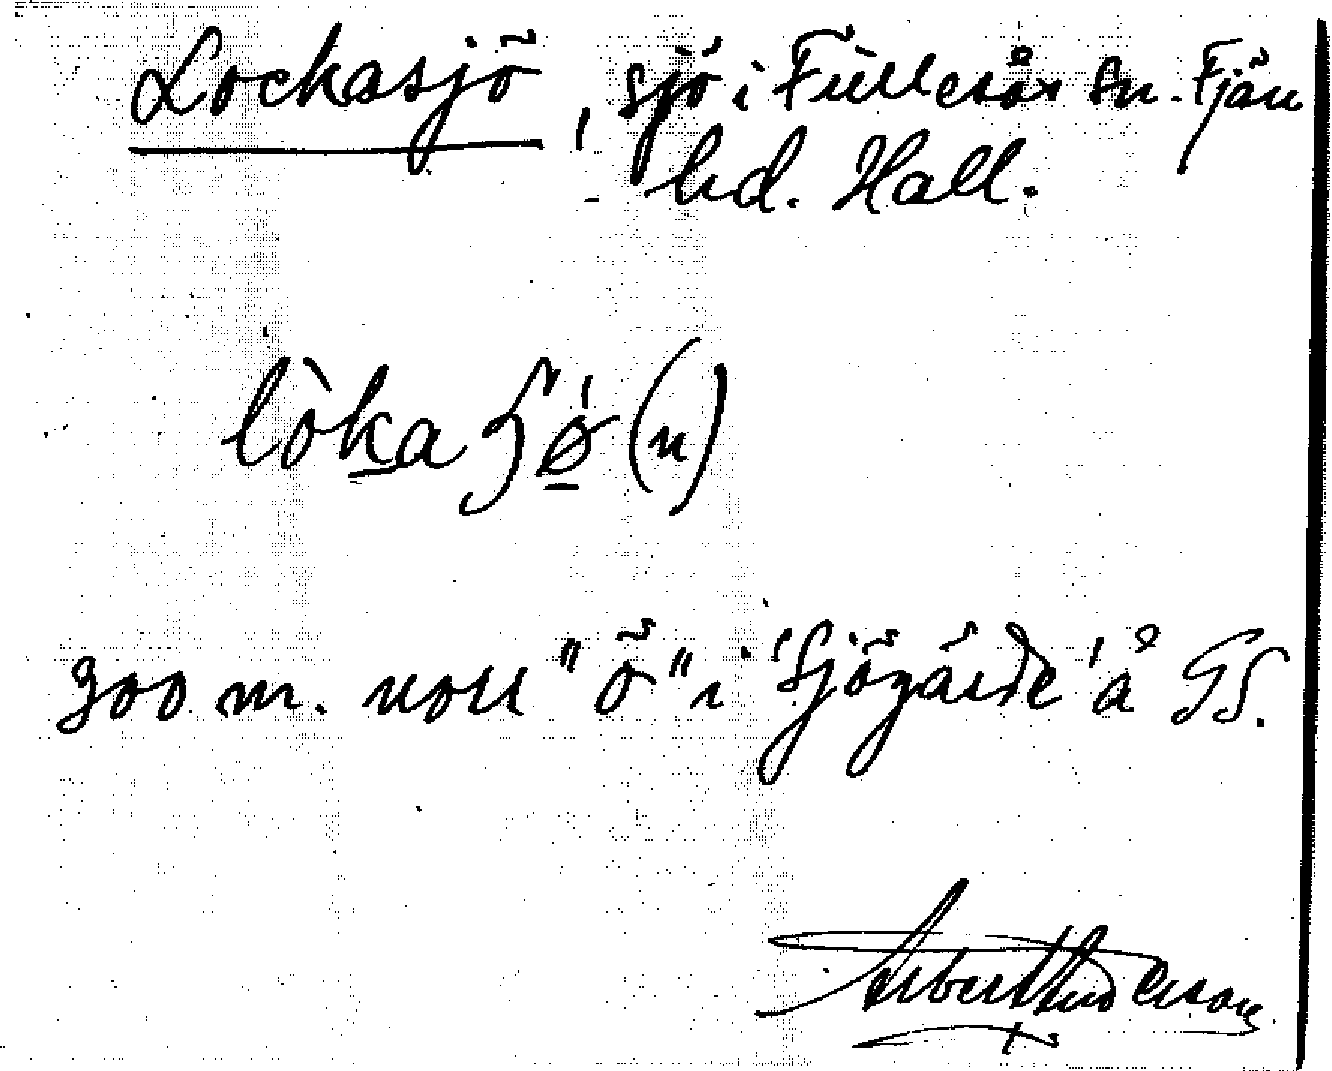 Lockasjö, sjö i Fülleråsr sn. Fjäre
hd. Hall.
lòka ʃǿ (n)
300 m. norr "ö" i 'Sjögärde' å GS.
Albert Anderson